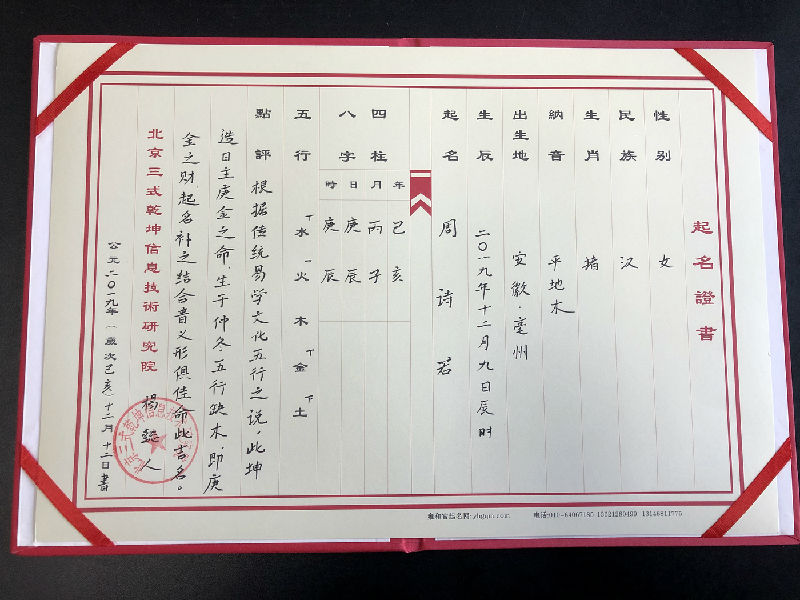 起名證書
性别 女
民族 汉
生肖 猪
納音 平地木
出生地 安徽·亳州
生辰 二〇一九年十二月九日辰时
起名 周诗君
四柱 年 月 日 時
八字 己亥 丙子 庚辰 庚辰
五行 水 火 木 金 土
點評 根据传统易学文化五行之说，此坤
造日主庚金之命，生于仲冬五行缺木，即庚
金之财，起名补之结合音义形俱佳命此吉名。
北京三式乾坤信息技術研究院 楊懿人
公元二〇一九年（歲次己亥）十二月十二日書
雍和宮起名网:yhgqm.com 电话:010-64067180 13321280499 13146811775